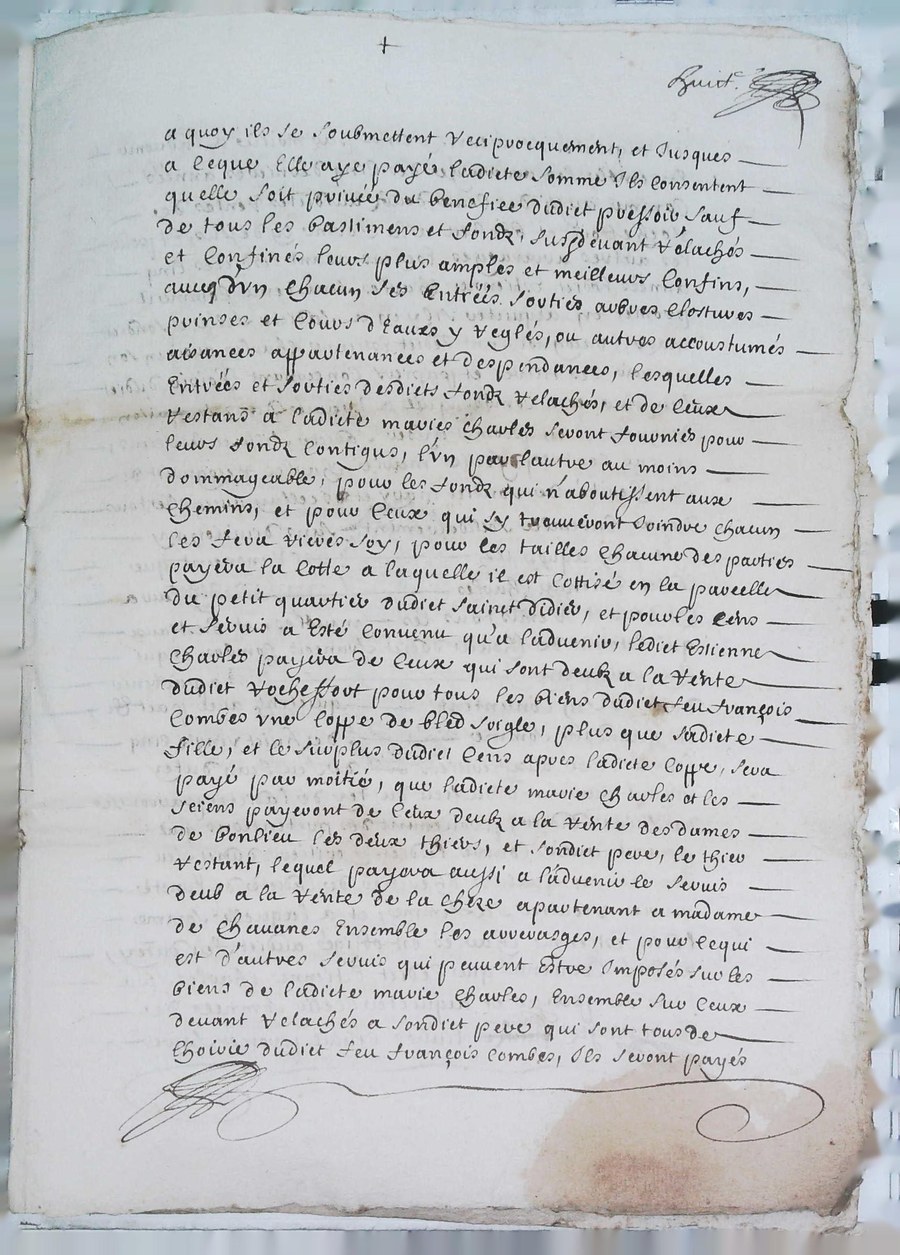 +
huict.
a quoy ils se soubmettent reciprocquement, et Jusques
a ceque Elle aye payé ladicte somme Ils consentent
quelle soit privée du benefice dudict pressoir sauf
de tous les bastimens et fondz, susd devant relachés
et Confinés leurs plus amples et meilleurs Confins,
avecq d'Vn Chacun ses Entrées sorties arbres Clostures
prinses et Cours d'Eaux y reglés, ou autres accoustumés
aisances appartenances et despendances, lesquelles
Entrées et sorties desdicts fondz relachés, et de Ceux
restans a ladicte marie charles seront fournies pour
leurs fondz Contigus, l'vn par l'autre au moins
dommageable, pour les fondz qui n'aboutissent aux
chemins, et pour Ceux qui sy trouveront Joindre chacun
les fera rieres soy, pour les tailles chacune des parties
payera la Cotte a laquelle il est Cottisé en la parcelle
du petit quartier dudict sainct Didier, et pour les Cens
et servis a Esté Convenu qu'a ladvenir, ledict Estienne
Charles payera de Ceux qui sont deubz a la rente
dudict rocheffort pour tous les biens dudict feu françois
Combes vne Coppe de bled soigle, plus que sadicte
fille, et le surplus dudict Cens apres ladicte Coppe, sera
payé par moitié, que ladicte marie charles et les
siens payeront de Ceux deubz a la rente des dames
de bonlieu les deux thiers, et sondict pere, le thier
restant, lequel payera aussi a l'advenir le servis
deub a la rente de la cheze apartenant a madame
de chavanes Ensemble les arrerages, et pour cequi
est d'autres servis qui peuvent Estre Imposés sur les
biens de ladicte marie charles, Ensemble sur Ceux
devant relachés a sondict pere qui sont tous de
l'hoirie dudict feu françois Combes, Ils seront payés